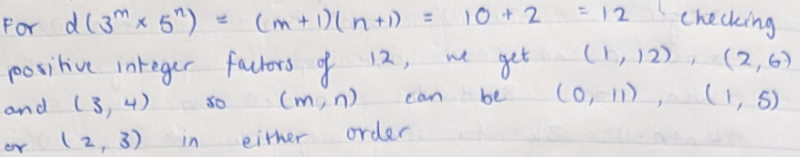 For d(3^m × 5^n) = (m+1)(n+1) = 10 + 2 = 12 checking
positive integer factors of 12, we get (1, 12), (2,6)
and (3, 4) so (m,n) can be (0, 11), (1, 5)
or (2, 3) in either order